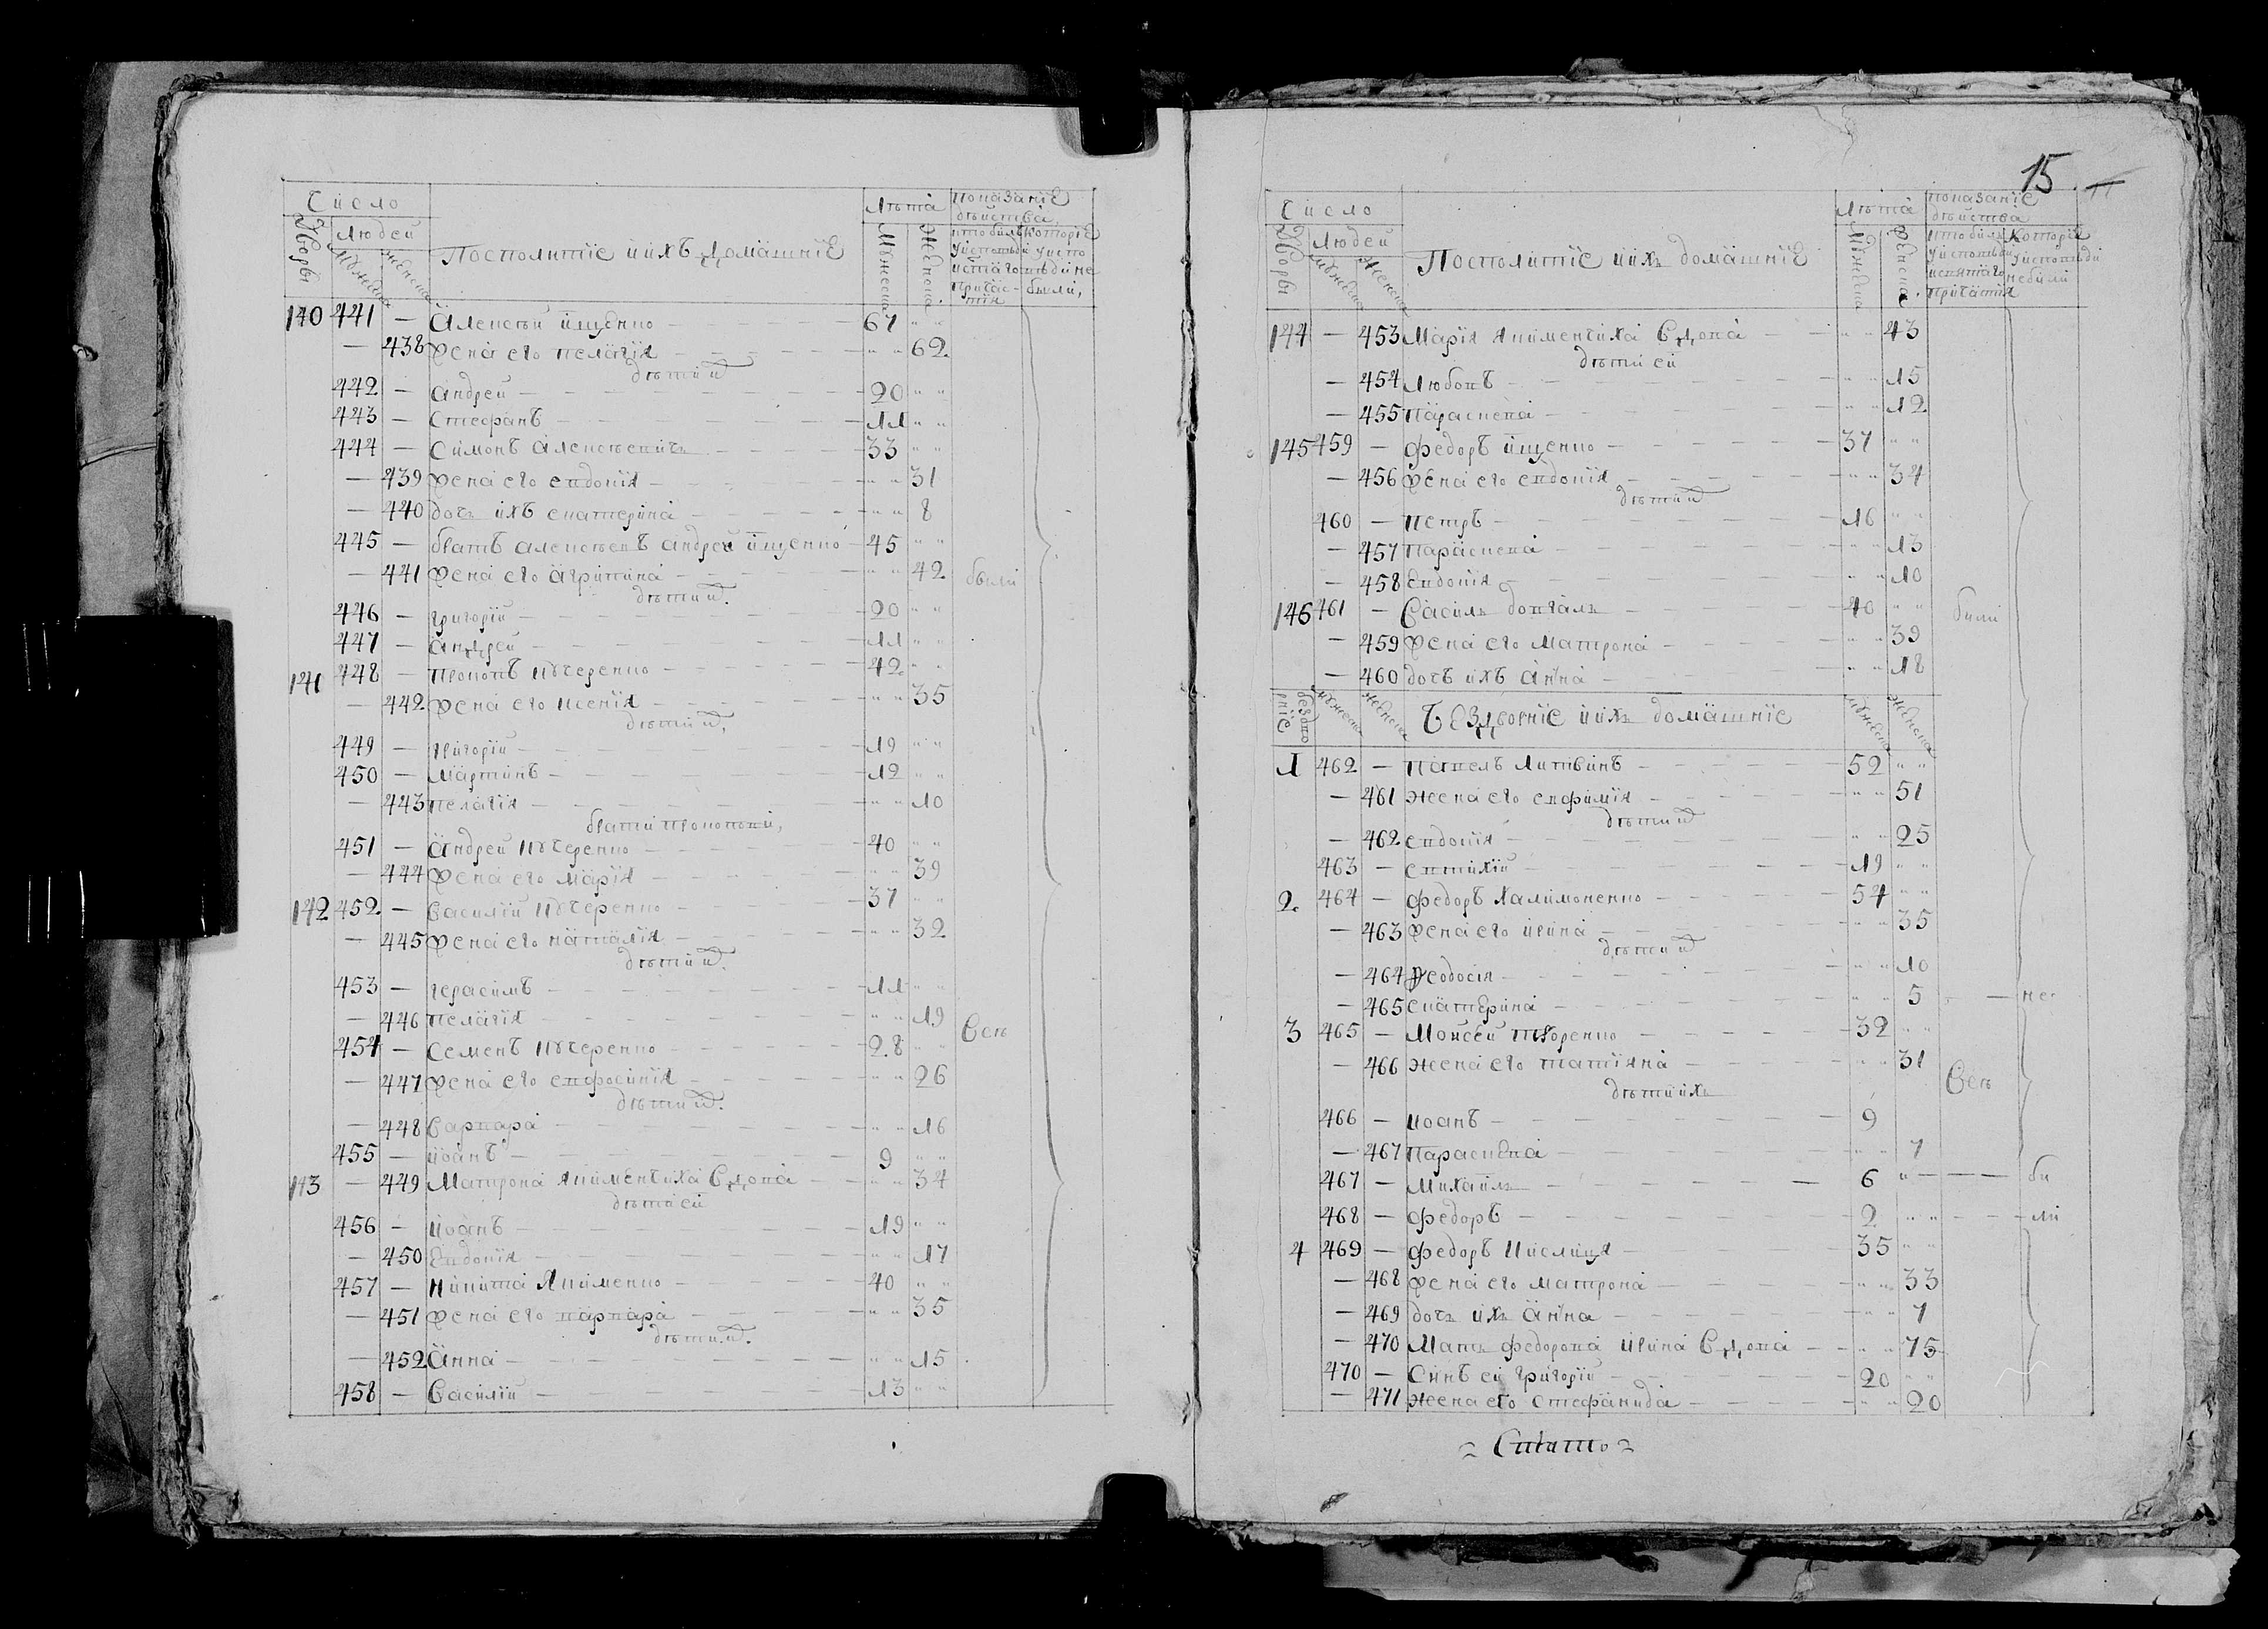 Число
Людей
Дворы
Мужеска
Женска
Посполитїе ииxъ домашнїе
Лѣта
Мужеска
Женска
показанїе
дѣйства
что были
у исповѣди
и с̃таго
причас-
тїя
которїе
у испо
вѣди не
были,
140 441 — Алексѣй ищенко 67
— 438 жена его пелагїя 62
дѣти и̃
442 — андрей 20
443 — стефанъ 11
444 — симонъ алексѣевичъ 33
— 439 жена его евдокїя 31
— 440 дочь ихъ екатерина 8
445 — братъ алексѣевъ андрей ищенко 45
— 441 жена его агрипина 42 были
дѣти и̃.
446 — григорїй 20
447 — андрей 11
141 448 — прокопъ кучеренко 42
— 442 жена его ксенїя 35
дѣти и̃,
449 — григорїй 19
450 — мартинъ 12
— 443 пелагїя 10
брати прокопови,
451 — андрей кучеренко 40
— 444 жена его марїя 39
142 452 — василїй кучеренко 37
— 445 жена его наталїя 32
дѣти и̃.
453 — герасимъ 11
— 446 пелагїя 19 Всѣ
454 — семенъ кучеренко 28
— 447 жена его евфосинїя 26
дѣти и̃.
— 448 варвара 16
455 — иоанъ 9
143 — 449 Матрона якименчиха вдова 34
дѣти ей
456 — иоанъ 19
— 450 Евдокїя 17
457 — никита Якименко 40
— 451 жена его варвара 35
дѣти и̃.
— 452 анна 15
458 — василїй 13
15
Число
Людей
Дворы
Мужеска
Женска
Посполитїе ииxъ домашнїе
Лѣта
Мужеска
Женска
показанїе
дѣйства
что были
у исповѣди
и святаго
причастїя
которїи
у исповѣди
не были
144 — 453 Марїя якименчиха вдова 43
дѣти ей
— 454 Любовъ 15
— 455 параскева 12
145 459 — федоръ ищенко 37
— 456 жена его евдокїя 34
дѣти и̃
460 — петръ 16
— 457 параскева 13
— 458 евдокїя 10
146 461 — василь довгаль 40 были
— 459 жена его матрона 39
— 460 дочъ ихъ анна 18
бездво
рнїе
мужеска
женска
Бездворнїе ииxъ домашнїе
мужеска
женска
1 462 — павелъ литвинъ 52
— 461 жена его евфимїя 51
дѣти и̃
— 462 евдокїя 25
463 — евтихїй 19
2 464 — федоръ халимоненко 54
— 463 жена его ирина 35
дѣти и̃
— 464 феодосїя 10
— 465 екатерина 5 — — не
3 465 — Моисей 32
— 466 жена его татїяна 31 Всѣ
дѣти ихъ
466 — иоанъ 9
— 467 параскева 7
467 — михаилъ 6 — — бы
468 — федоръ 2 — — ли
4 469 — федоръ кислиця 35
— 468 жена его матрона 33
— 469 дочь ихъ анна 7
— 470 мать федорова ирина вдова 75
470 — синъ ей григорїй 20
— 471 жена его стефанида 20